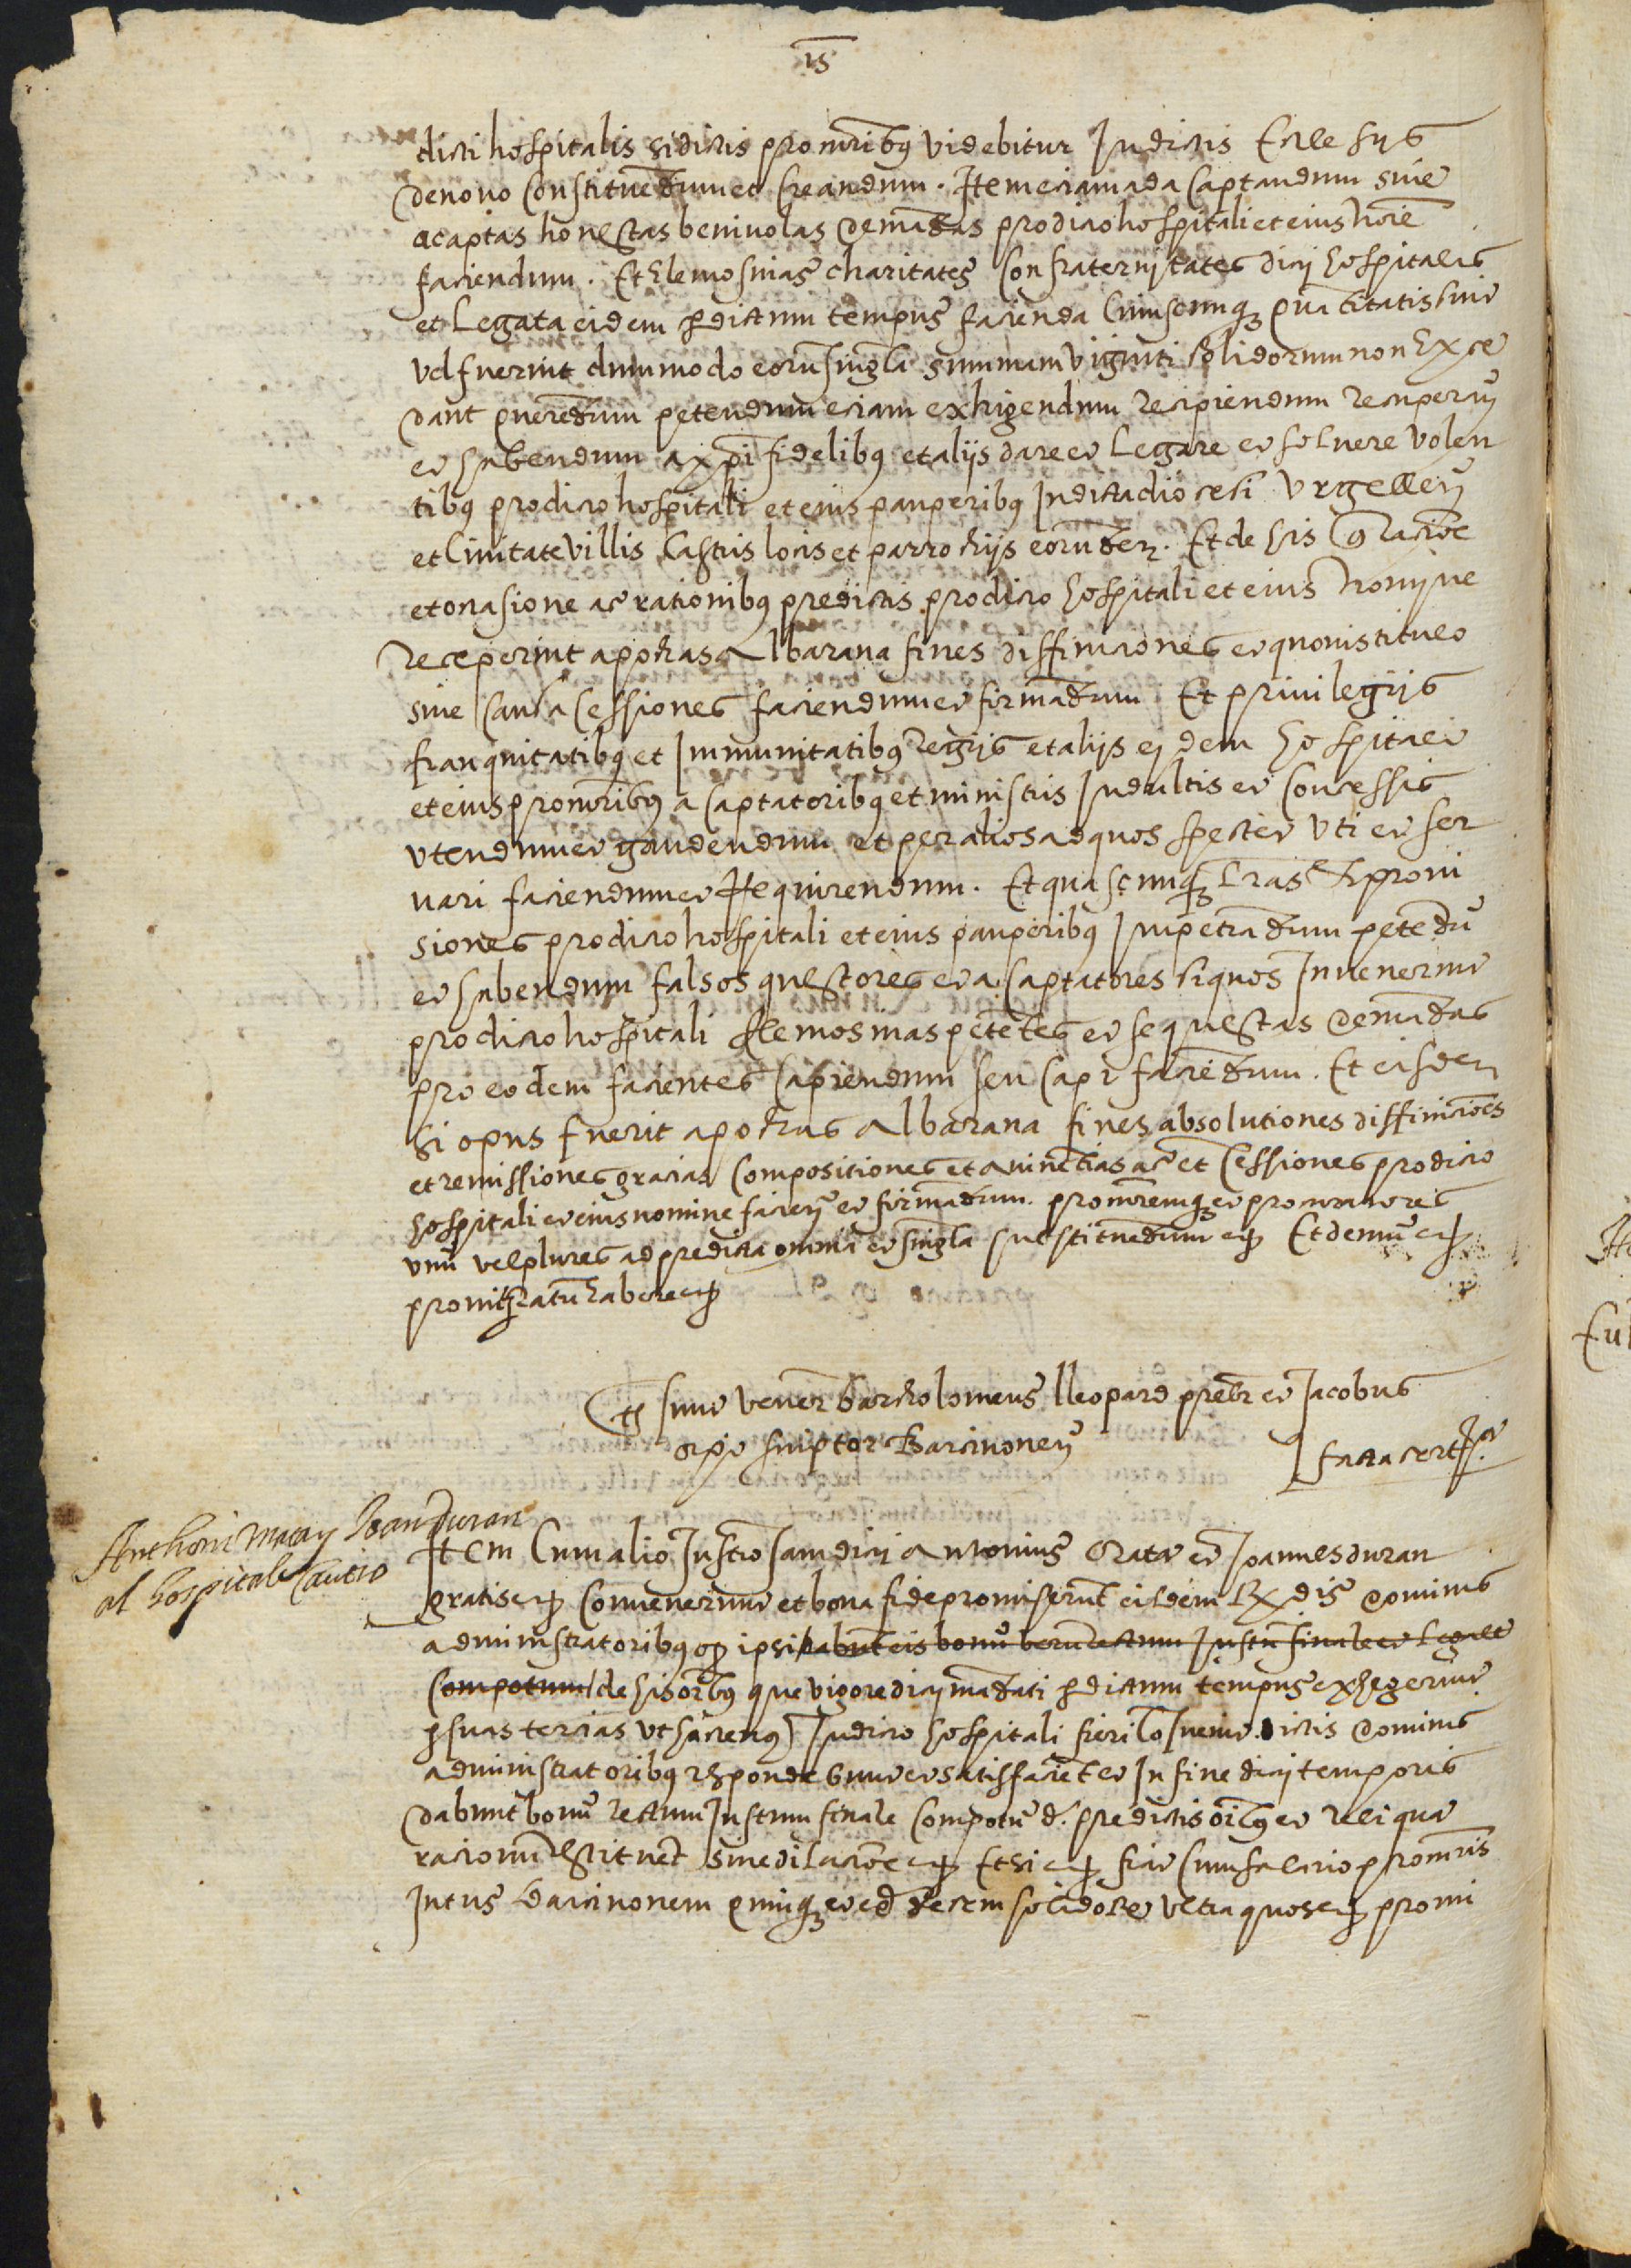 is
dicti hospitalis si dictis procuribus videbitur In dictis Eccle siis
de novo Constituedum et Creandum. Item eciam ad a Captandum sive
acaptas honestas benivolas demādas pro dicto hospitali et eius noīe
faciendum. Et Elemosinas charitates Confraternitates dicti hospitalis
et Legata eidem per dictum tempus facienda Cuiuscumque quātitatis sint
vel fuerint dummodo eorū singla summam viginti solidorum non Exce
dant querēdum petendum eciam exhigendum recipiendum recuperā
et habendum a xpī fidelibus et aliis dare et Legare et solvere volen
tibus pro dicto hospitali et eius pauperibus In dicta diocesi Urgellen̄
et Civitate villis Castris locis et parrochiis eorūdem. Et de his Que racōe
et occasione ac rationibus predictis pro dicto hospitali et eius nomine
receperint apochas Albarana fines diffiniciones et quovis titulo
sive causa Cessiones faciendum et firmādum Et privilegiis
franquitatibus et Immunitatibus regiis et aliis eidem hospitali
et eius procuribus a Captatoribus et ministris Indultis et Concessis
utendum et gaudendum et per alios ad quos spectet uti et ser
vari faciendum et Requirendum. Et quascumque Lr̄as et provi
siones pro dicto hospitali et eius pauperibus Impetrādum petēdū
et habendum falsos questores et a Captatores si quos Invenerint
pro dicto hospitali Elemosinas petētes et se questas demādas
pro eodem facientes Capiendum seu Capi faciēdum. Et eisdem
si opus fuerit apochas Albarana fines absolutiones diffiniciōes
et remissiones gracias Compositiones et avinētias ac et Cessiones pro dicto
hospitali et eius nomine facien̄ et firmādum. procūremque et procuratores
unū vel plures ad predicta omnia et singla substituēdum etc Et demū etc
promitt ratū habere etc
Ts sunt vener̄ Bartholomeus lleopard prēbr et Jacobus
scriptor Barcinonen̄
facta cert
Anthoni Joan Duran
al hospital Cautio
Item Cum alio Instrō Iam dicti Antonius et Joannes duran
gratis etc Convenerunt et bona fide promiserunt eisdem dominis
administratoribus quod ipsi dabūt eis bonū verū rectum Justū finale et Legale
Compotum de his oībus que vigore dicti mādati per dictum tempus exhegerint
per suas tercias ut hactenus In dicto hospitali fieri Consuevit dictis dominis
administratoribus respondebunt et satisfaciēt et In fine dicti temporis
dabunt bonū rectum Justum finale Compotū de predictis oībus et reliqua
racionū restituēt sine dilaciōe etc Et si etc fiat cum salario procuris
Intus Barcinonem quinque et extra decem solidos ultra quos etc promi